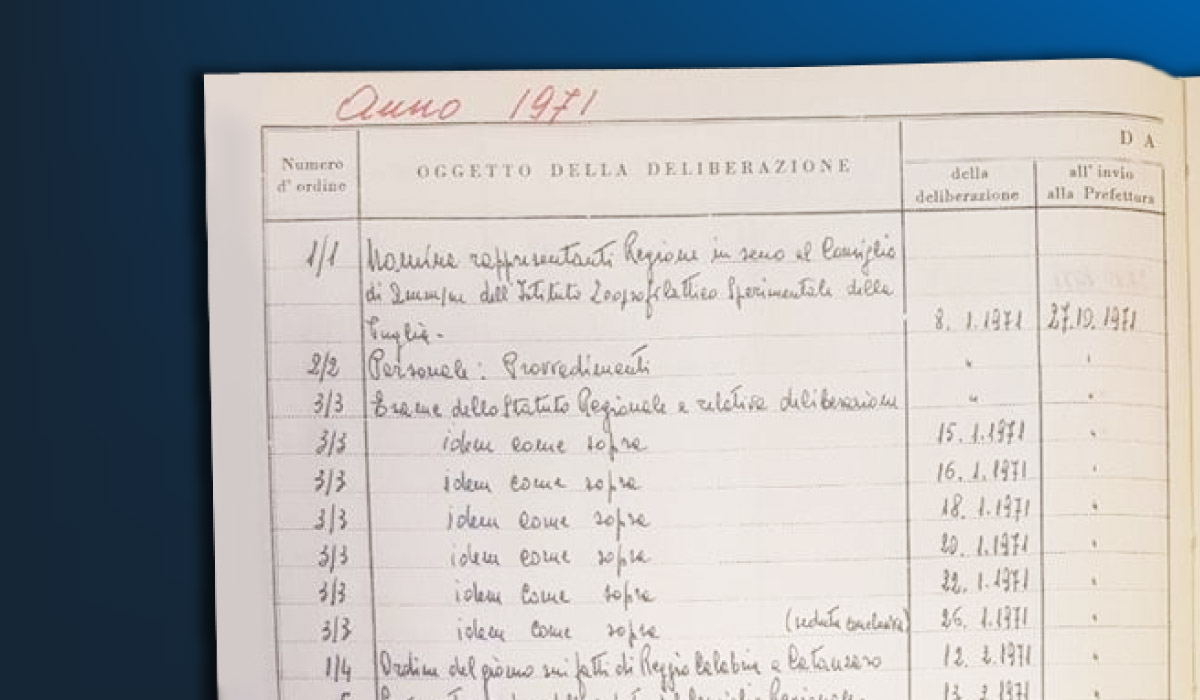 Anno 1971
Numero d'ordine OGGETTO DELLA DELIBERAZIONE DA
della deliberazione all'invio alla Prefettura
1/1 Nomina rappresentanti Regione in seno al Consiglio
di dell'Istituto Zooprofilattico Sperimentale della
Puglia - 8. 1. 1971 27.10. 1971
2/2 Personale: Provvedimenti "
3/3 Esame dello Statuto Regionale e relativa deliberazione "
3/3 idem come sopra 15. 1. 1971 "
3/3 idem come sopra 16. 1. 1971 "
3/3 idem come sopra 18. 1. 1971 "
3/3 idem come sopra 20. 1. 1971 "
3/3 idem come sopra 22. 1. 1971 "
3/3 idem come sopra (seduta conclusiva) 26. 1. 1971 "
1/4 Ordine del giorno sui fatti di Reggio Calabria e Catanzaro 12. 2. 1971 "